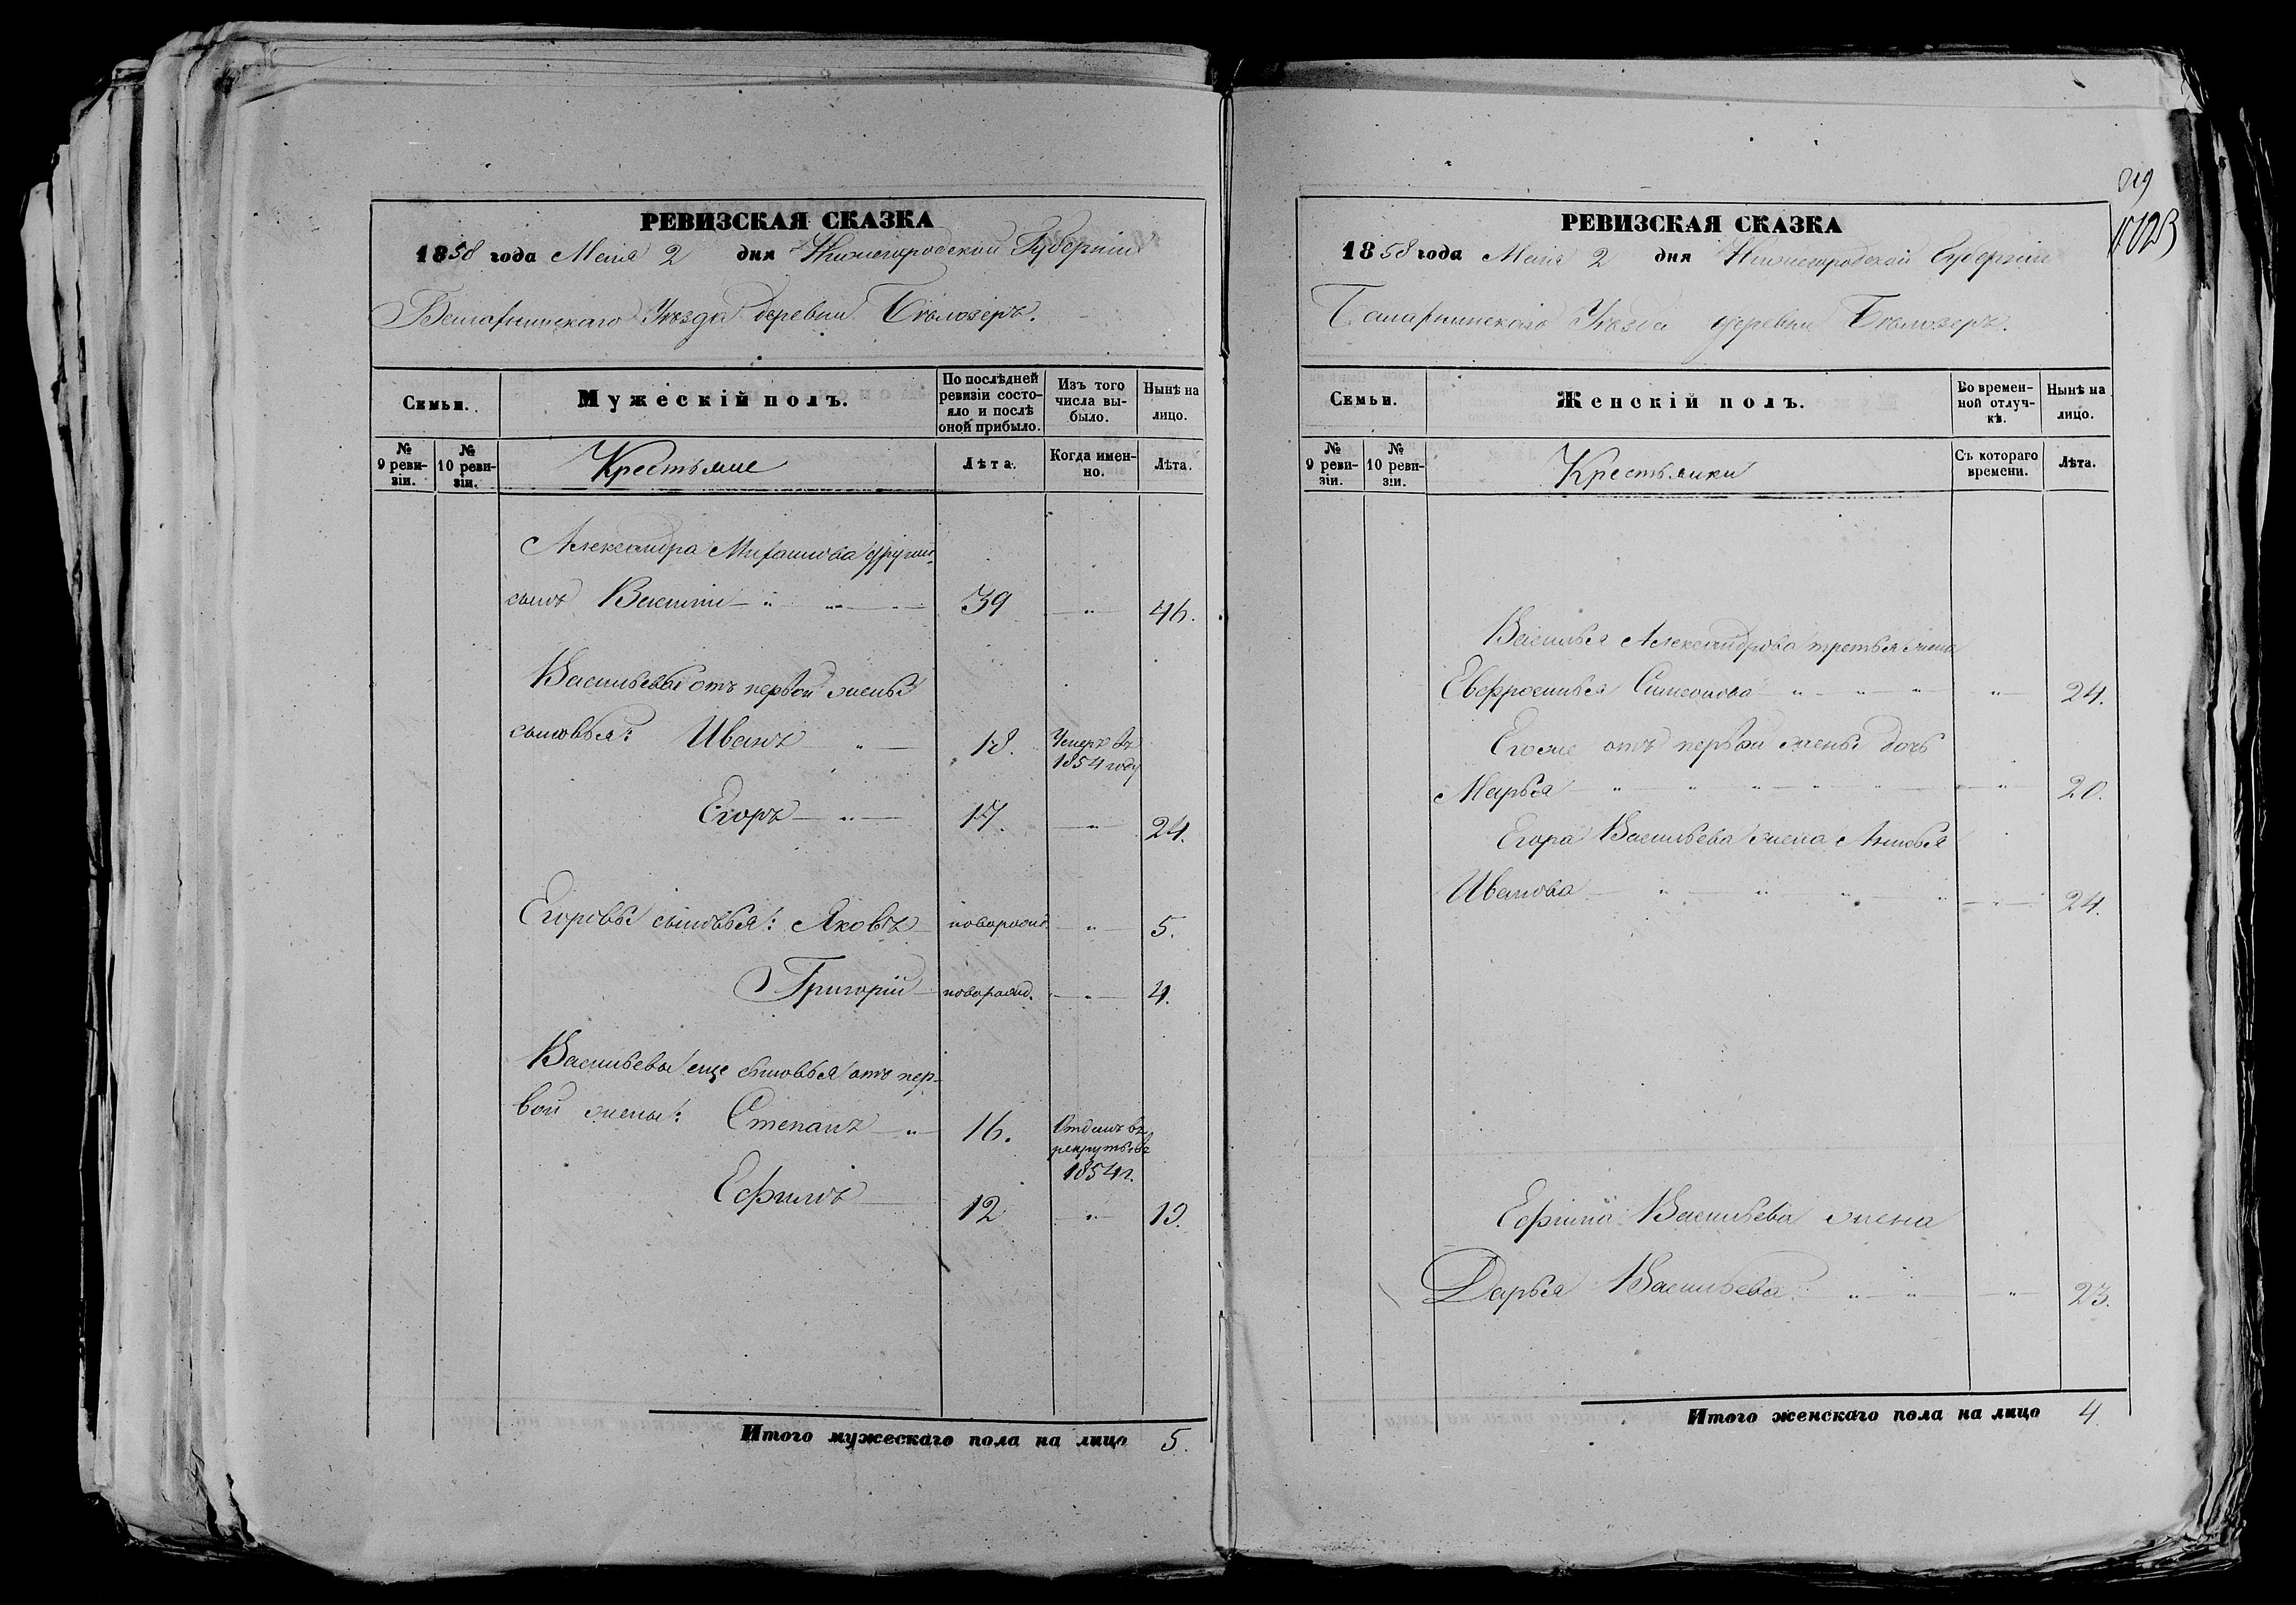 РЕВИЗСКАЯ СКАЗКА
1858 года Маія 2 дня Нижегородской Губерніи
Уѣзда деревни Бѣлозеръ.
Семьи.
Мужескій полъ.
По послѣдней ревизіи состояло и послѣ оной прибыло.
Изъ того числа выбыло.
Нынѣ на лицо.
№ 9 ревизіи.
№ 10 ревизіи.
Крестьяне
Лѣта.
Когда именно.
Лѣта.
Александра другій
сынъ Василій 39 46.
Васильевы отъ первой жены
сыновья: Иванъ 18. Умеръ въ 1854 году
Егоръ 17. 24.
Егоровы сыновья: Яковъ новорожд. 5.
Григорій новорожд. 4.
Васильевы еще сыновья отъ пер-
вой жены: Степанъ 16. Отданъ въ рекруты въ 1854 г.
Ефимъ 12 19.
Итого мужескаго пола на лицо 5.
РЕВИЗСКАЯ СКАЗКА
1858 года Маія 2 дня Нижегородской Губерніи
Уѣзда деревни Бѣлозеръ.
Семьи.
Женскій полъ.
Во временной отлучкѣ.
Нынѣ на лицо.
№ 9 ревизіи.
№ 10 ревизіи.
Крестьянки
Съ котораго времени.
Лѣта.
Василья Александрова третья жена
Евфросинья Симонова 24.
Егоже отъ первой жены дочь
Марья 20.
Егора Васильева жена
Иванова 24.
Ефима Васильева жена
Дарья Васильева 23.
Итого женскаго пола на лицо 4.